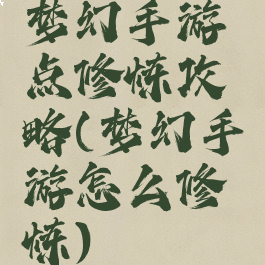 梦幻手游
点修炼攻
略(梦幻手
游怎么修
炼)